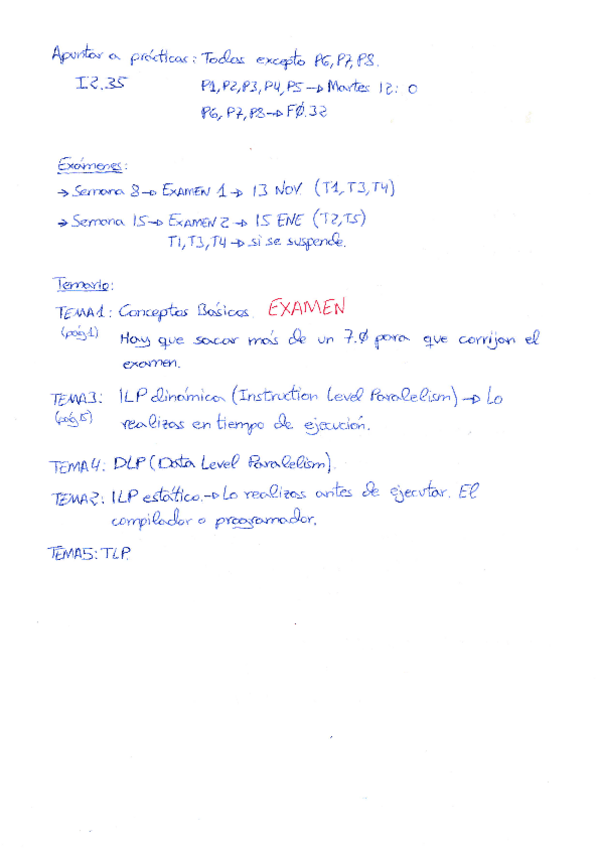 Apuntar a prácticas: Todas excepto P6, P7, P8.
I2.35 P1, P2, P3, P4, P5 → Martes 12: 0
P6, P7, P8 → FØ.32
Exámenes:
→ Semana 8 → EXAMEN 1 → 13 NOV. (T1, T3, T4)
→ Semana 15 → EXAMEN 2 → 15 ENE (T2, T5)
T1, T3, T4 → si se suspende.
Temario:
TEMA1: Conceptos Básicos. EXAMEN
(pág 1) Hay que sacar más de un 7.Ø para que corrijan el
examen.
TEMA3: ILP dinámica (Instruction Level Paralelism) → Lo
(pág 5) realizas en tiempo de ejecución.
TEMA4: DLP (Data Level Paralelism).
TEMA2: ILP estático. → Lo realizas antes de ejecutar. El
compilador o programador.
TEMA5: TLP.